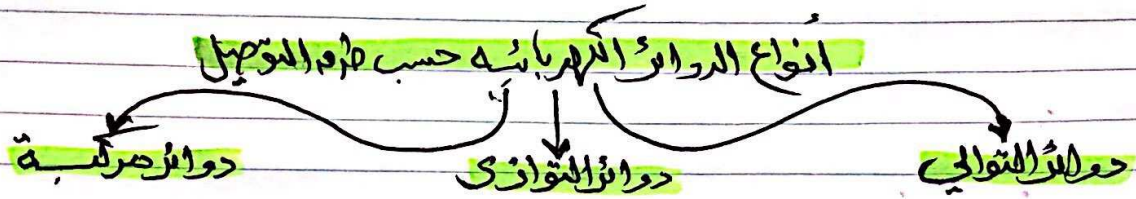 أنواع الدوائر الكهربائيه حسب طرق التوصيل
دوائر التوالي دوائر التوازى دوائر مركبة